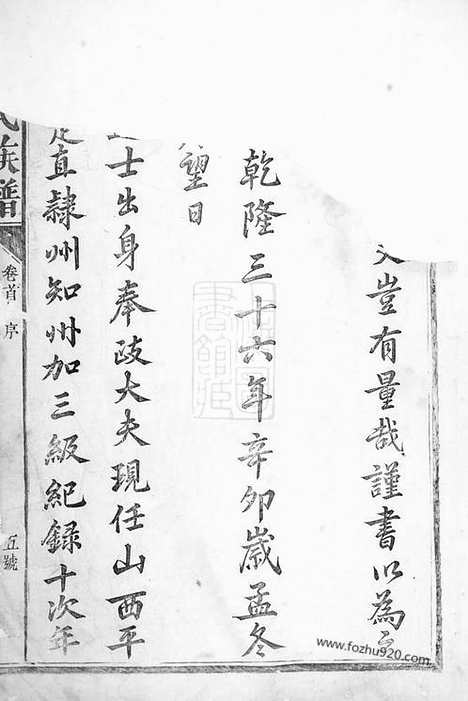 豈有量哉謹書以為
乾隆三十六年辛卯歲孟冬
望日
士出身奉政大夫現任山西平
定直隸州知州加三級紀錄十次年
氏族譜
卷首
序
五號
www.fozhu920.com